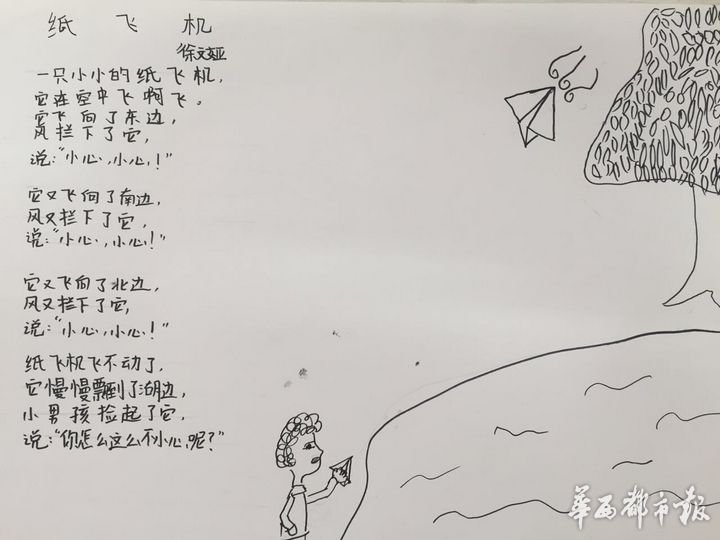 纸飞机
徐文娅
一只小小的纸飞机，
它在空中飞啊飞。
它飞向了东边，
风拦下了它，
说：“小心，小心！”
它又飞向了南边，
风又拦下了它，
说：“小心，小心！”
它又飞向了北边，
风又拦下了它，
说：“小心，小心！”
纸飞机飞不动了，
它慢慢飘到了湖边，
小男孩捡起了它，
说：“你怎么这么不小心呢？”
华西都市报